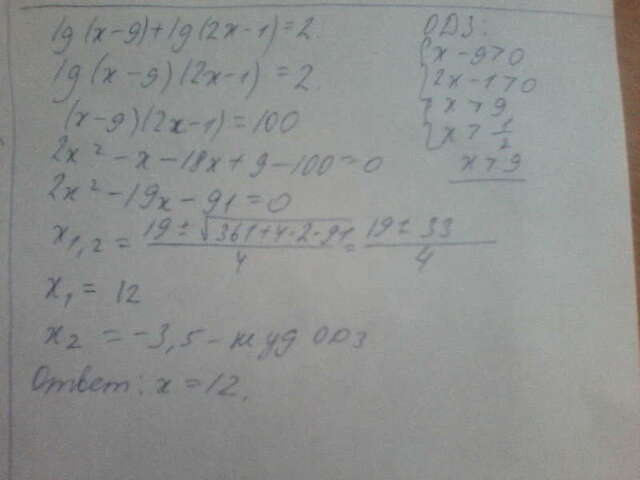 lg(x-9)+lg(2x-1)=2.
lg(x-9)(2x-1)=2.
(x-9)(2x-1)=100
2x²-x-18x+9-100=0
2x²-19x-91=0
x₁,₂ = (19±√(361+4·2·91))/4 = (19±33)/4
x₁ = 12
x₂ = -3,5 - не уд ОДЗ
Ответ: x=12.
ОДЗ:
{x-9>0
{2x-1>0
{x>9
{x>1/2
x>9